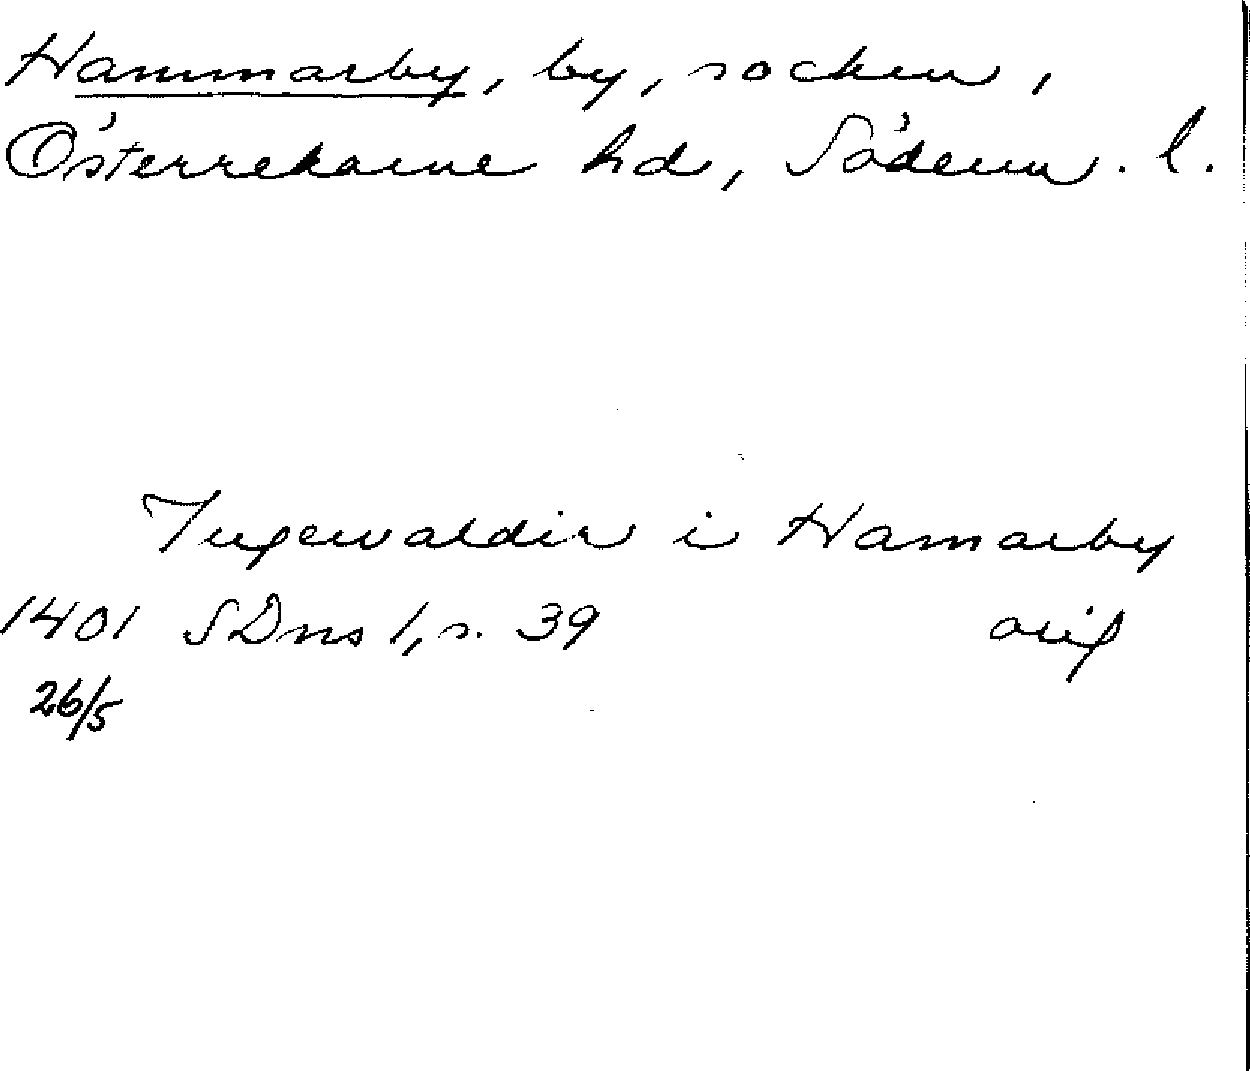 Hammarby, by, socken,
Österrekarne hd, Söderm. l.
Ingewaldir i Hamarby
1401 SDns 1, s. 39 orig
26/5